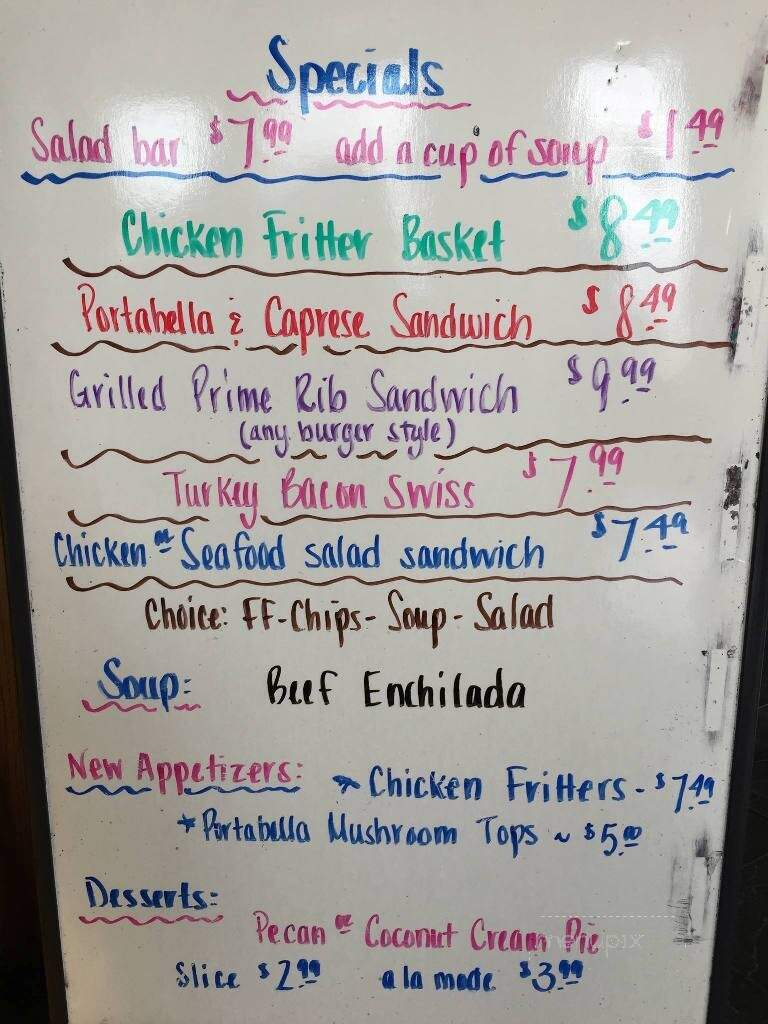 Specials
Salad bar $7.99 add a cup of soup $1.49
Chicken Fritter Basket $8.49
Portabella & Caprese Sandwich $8.49
Grilled Prime Rib Sandwich $9.99
(any burger style)
Turkey Bacon Swiss $7.99
Chicken or Seafood salad sandwich $7.49
Choice: FF-Chips-Soup-Salad
Soup: Beef Enchilada
New Appetizers: * Chicken Fritters - $7.49
* Portabella Mushroom Tops ~ $5.00
Desserts:
Pecan or Coconut Cream Pie
Slice $2.99 a la mode $3.99